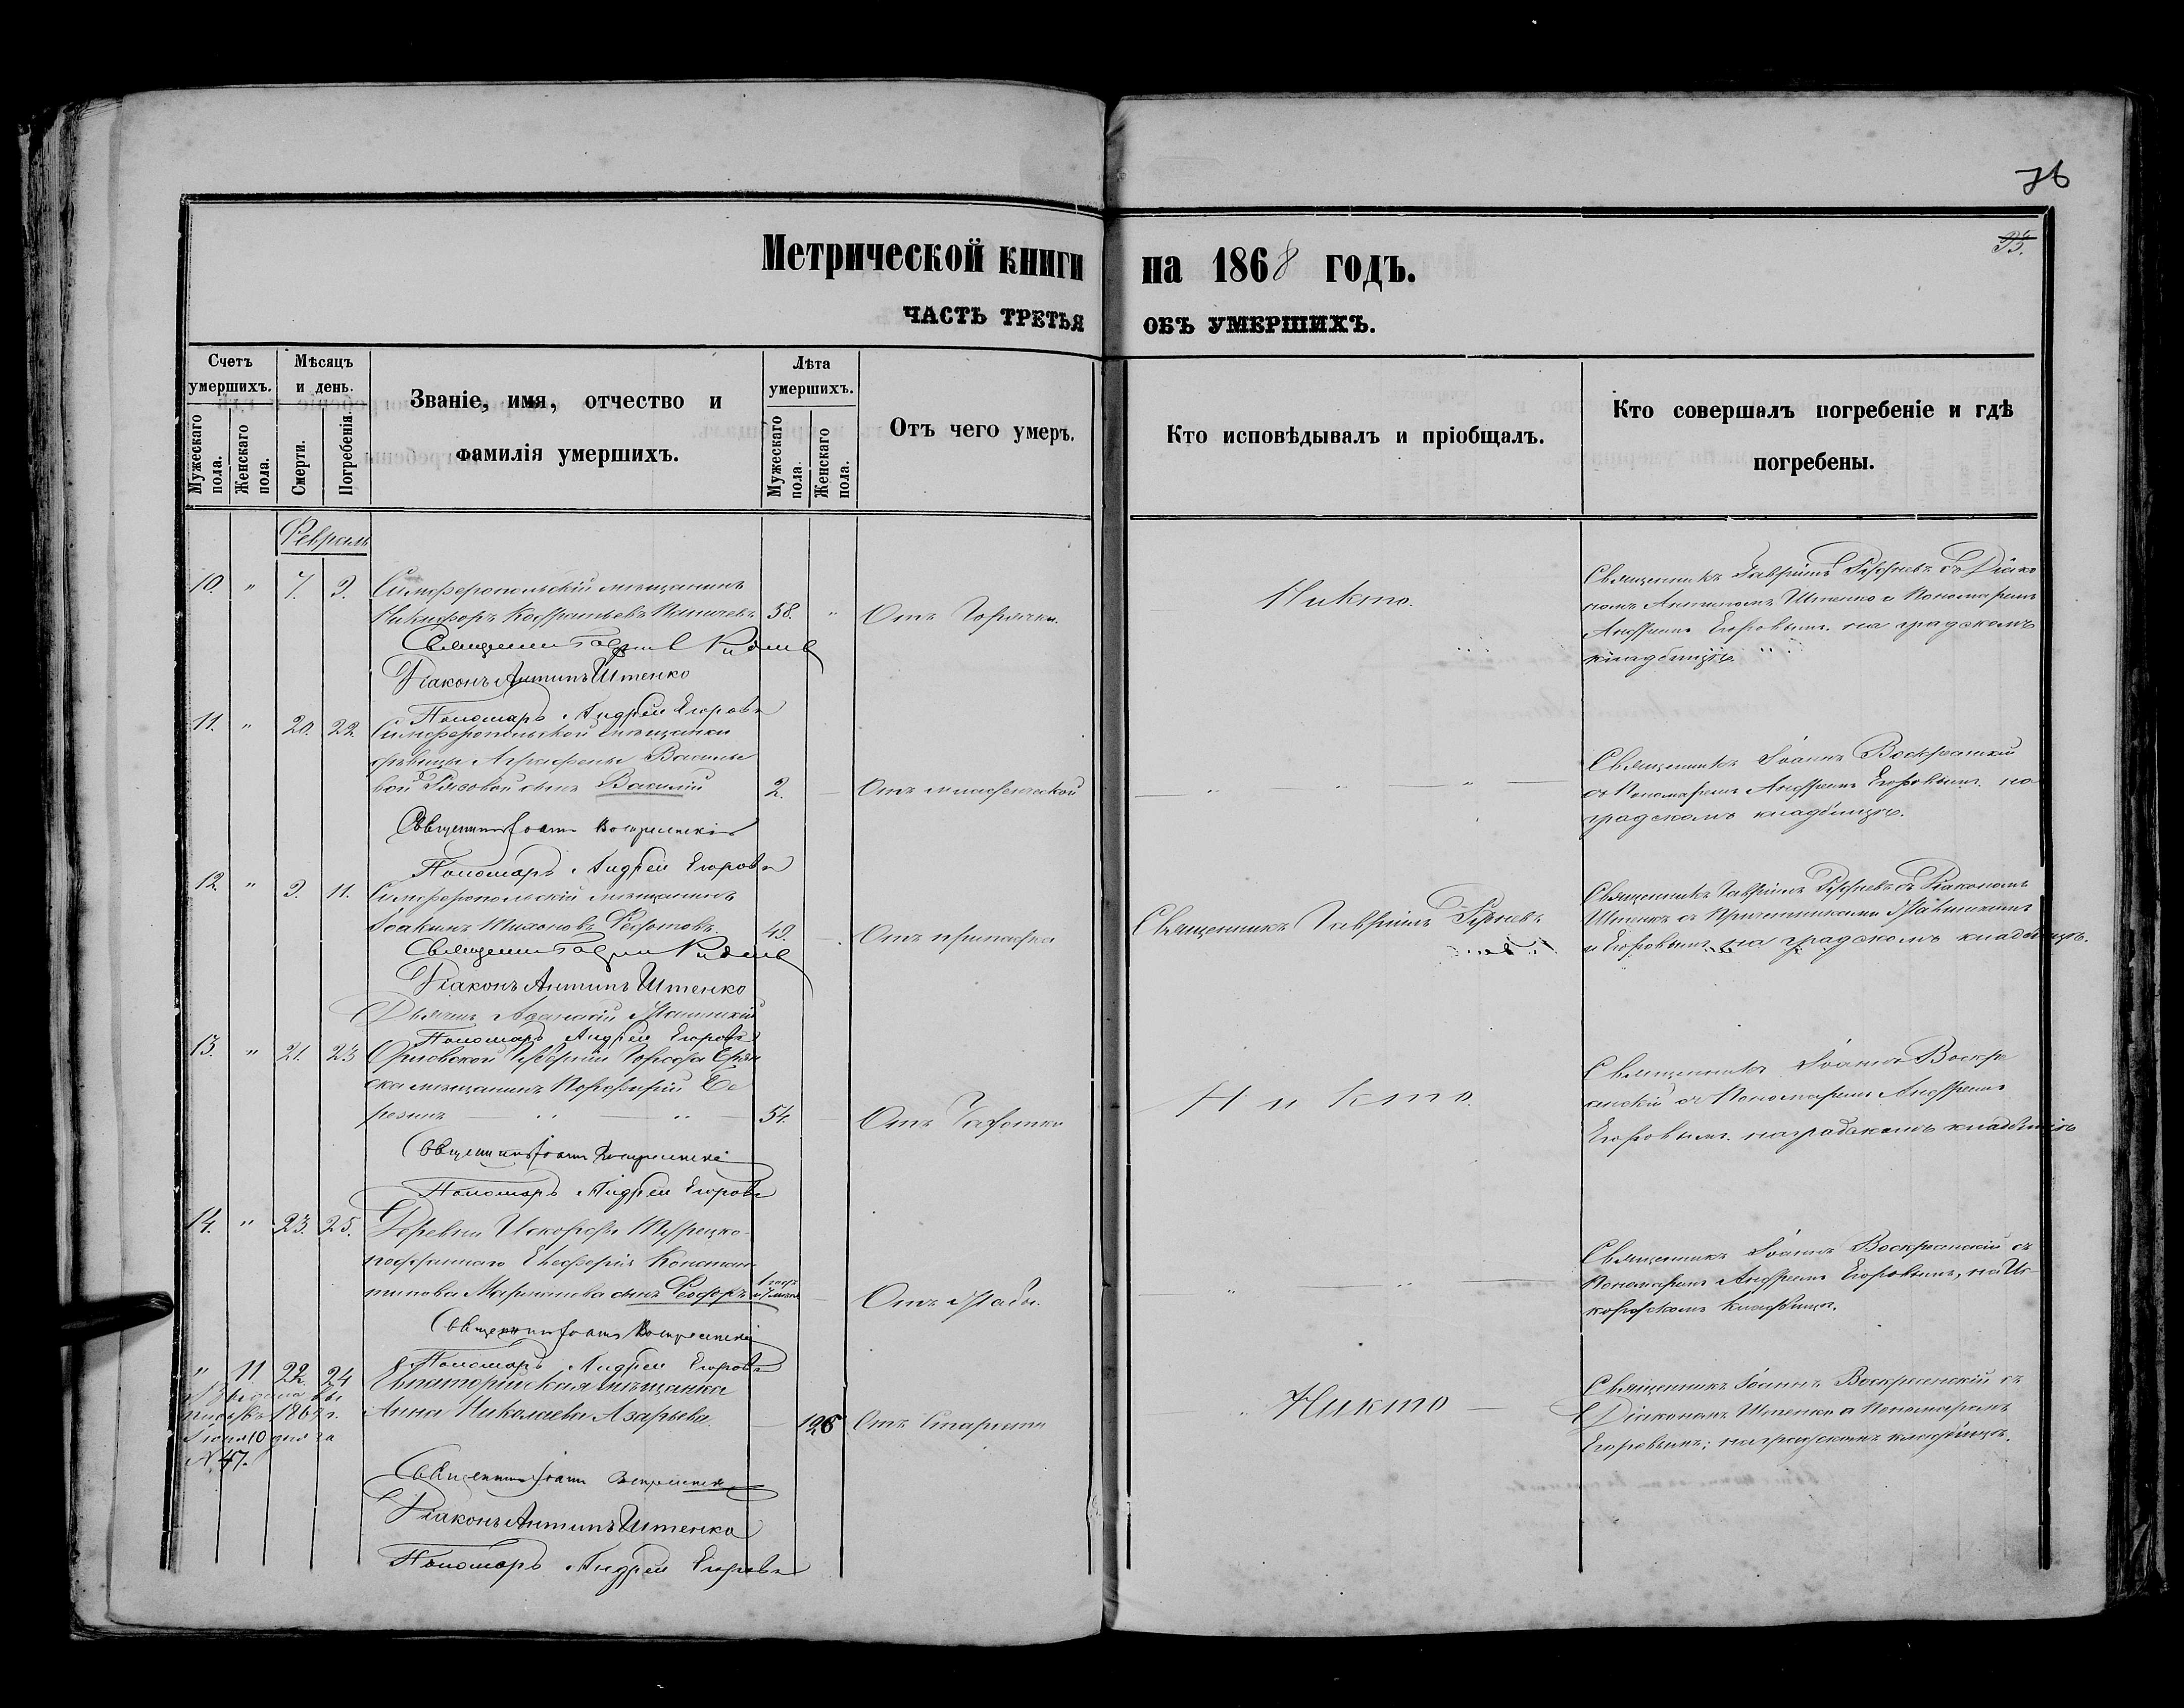 76
Метрической книги на 1868 годъ.
ЧАСТЬ ТРЕТЬЯ ОБЪ УМЕРШИХЪ.
Счетъ умершихъ.
Мужескаго пола.
Женскаго пола.
Мѣсяцъ и день.
Смерти.
Погребенія.
Званіе, имя, отчество и
фамилія умершихъ.
Лѣта умершихъ.
Мужескаго пола.
Женскаго пола.
Отъ чего умеръ.
Кто исповѣдывалъ и пріобщалъ.
Кто совершалъ погребеніе и гдѣ
погребены.
Февраль
10. " 7. 9. Симферопольскій мѣщанинъ
Никифоръ 58. " Отъ Горячки.
Никто.
Священникъ Гавріилъ съ Діако
номъ Антипомъ Штенко и Пономаремъ
Андреемъ Егоровымъ. на градскомъ
кладбищѣ.
Священникъ Гавріилъ
Діаконъ Антипъ Штенко
Пономарь Андрей Егоровъ
11. " 20. 22. Симферопольской мѣщанки
дѣвицы Агрофены Василье
вой сынъ Василій 2. Отъ младенческой
Священникъ Іоаннъ Воскресенскій
съ Пономаремъ Андреемъ Егоровымъ. на
градскомъ кладбищѣ.
Священникъ Іоаннъ Воскресенскій
Пономарь Андрей Егоровъ
12. " 9. 11. Симферопольскій мѣщанинъ
Іоакимъ Тихоновъ Федотовъ. 49. Отъ припадка
Священникъ Гавріилъ
Священникъ Гавріилъ съ Діакономъ
Штенко съ Причетниками
и Егоровымъ на градскомъ кладбищѣ.
Священникъ Гавріилъ
Діаконъ Антипъ Штенко
Пономарь Андрей Егоровъ
13. " 21. 23 Орловской Губерніи Города
ска мѣщанинъ Порфирій Бе
резинъ 54. Отъ Чахотки
Никто.
Священникъ Іоаннъ Воскре
сенскій съ Пономаремъ Андреемъ
Егоровымъ. на градскомъ кладбищѣ
Священникъ Іоаннъ Воскресенскій
Пономарь Андрей Егоровъ
14. " 23. 25. Деревни Турецко-
подданнаго Константи
нова сынъ Феодоръ 1 годъ Отъ
Священникъ Іоаннъ Воскресенскій съ
Пономаремъ Андреемъ Егоровымъ, на
кладбищѣ.
Священникъ Іоаннъ Воскресенскій
Пономарь Андрей Егоровъ
" 11 22. 24 Евпаторійская мѣщанка
Анна Николаева Азарьева. Отъ Старости
Никто
Священникъ Іоаннъ Воскресенскій съ
Діакономъ Штенко и Пономаремъ
Егоровымъ; на градскомъ кладбищѣ.
выдана вы
пись 186
10 дня за
№ 47.
Священникъ Іоаннъ Воскресенскій
Діаконъ Антипъ Штенко
Пономарь Андрей Егоровъ